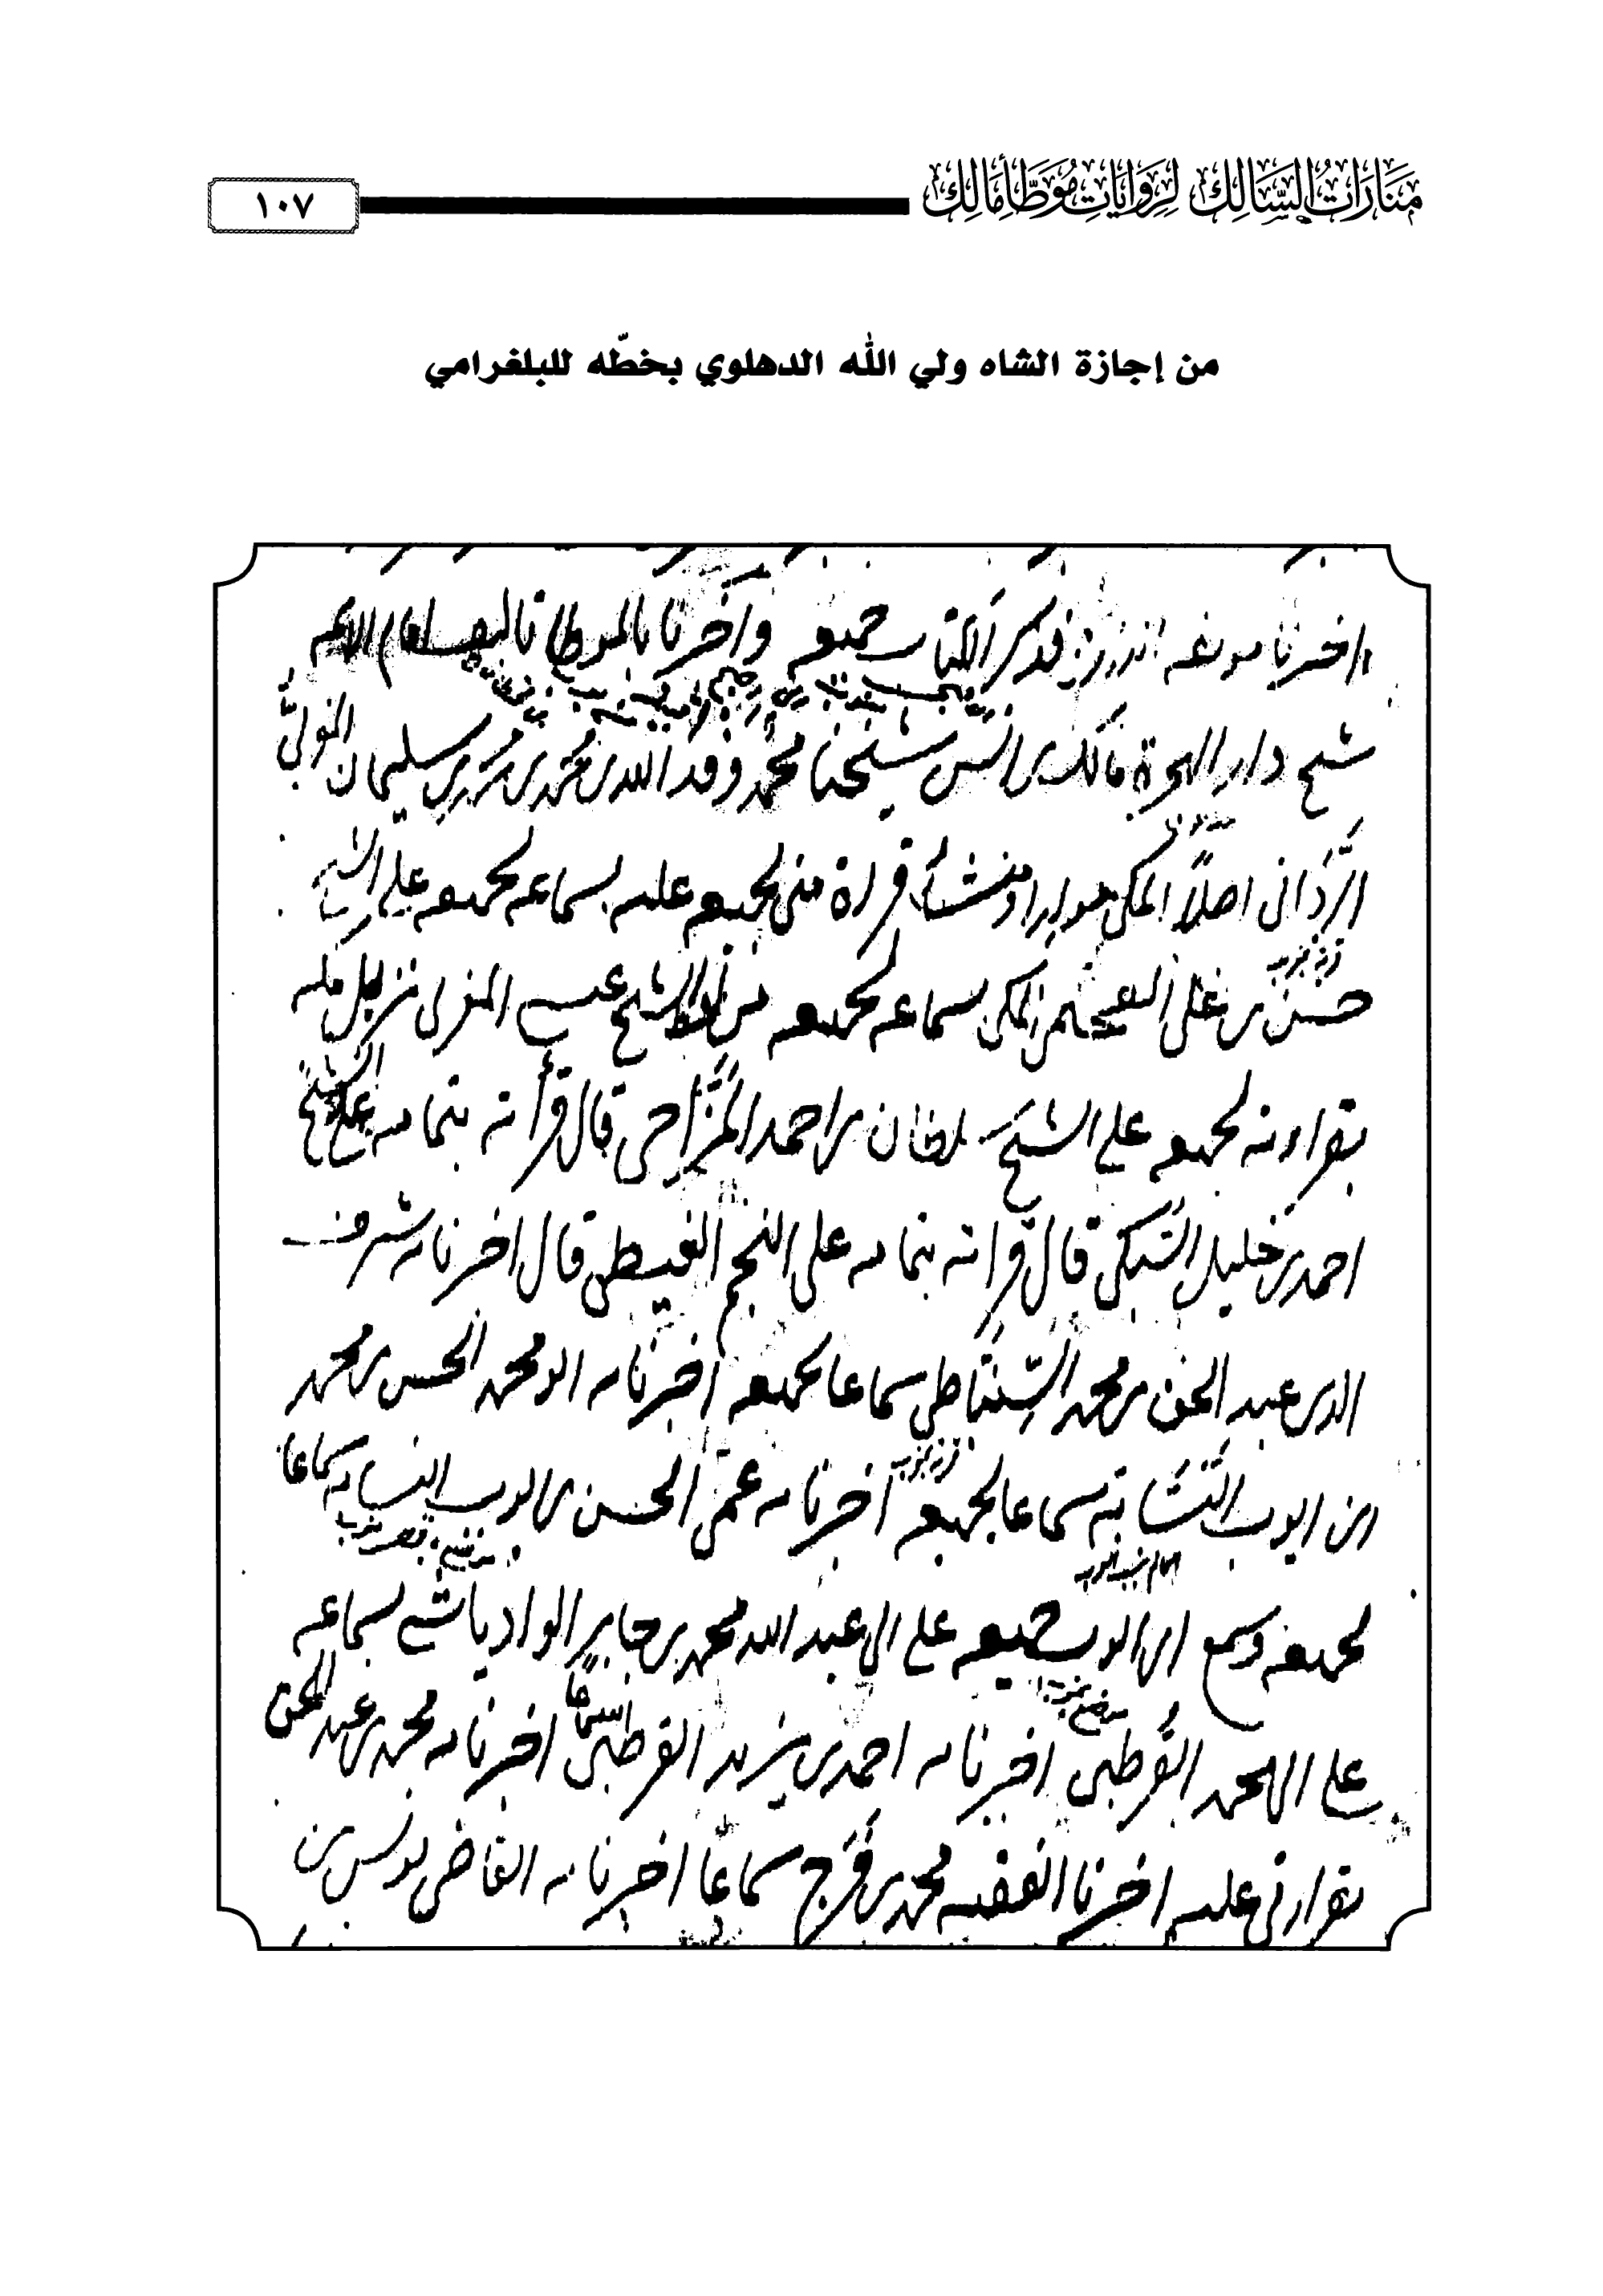 مَنَارَاتُ السَّالِكِ لِرِوَايَاتِ مُوَطَّأِ مَالِكٍ
١٠٧
من إجازة الشاه ولي الله الدهلوي بخطّه للبلغرامي
اخبرنا مولفه فذكر الكتاب جميعه واخبرنا بالموطا تاليف امام الائمه
شيخ دار الهجرة مالك بن انس شيخنا محمد وفد الله بن محمد بن محمد بن سليمان المغربي
الرُّدَانى اصلاً المكى مولدا ومنشأ قراة منى لجميعه عليه بسماعه لجميعه على الشيخ
حسن بن على العجيمى المكى بسماعه لجميعه الشيخ عيسى المغربى نزيل مكه
بقراءته لجميعه على الشيخ سلطان بن احمد المَزَّاحى قال قرأته بتمامه على الشيخ
احمد بن خليل السُّبكى قال قراته بتمامه على النجم الغيطى قال اخبرنا به شرف
الدين عبد الحق بن محمد السِّنباطى سماعا لجميعه اخبرنا به ابو محمد الحسن بن محمد
ابن ايوب النسَّابة سماعا لجميعه اخبرنا به عمى الحسن بن ايوب النسابه سماعا
لجميعه وسمع ابن ايوب جميعه على ابى عبد الله محمد بن جابر الوادياشى بسماعه
على ابى محمد القُرطبى اخبرنا به احمد بن يزيد القرطبى سماعًا اخبرنا به محمد بن عبد الحق
بقراءتى عليه اخبرنا الفقيه محمد بن فَرَج سماعًا اخبرنا به القاضى يونس بن